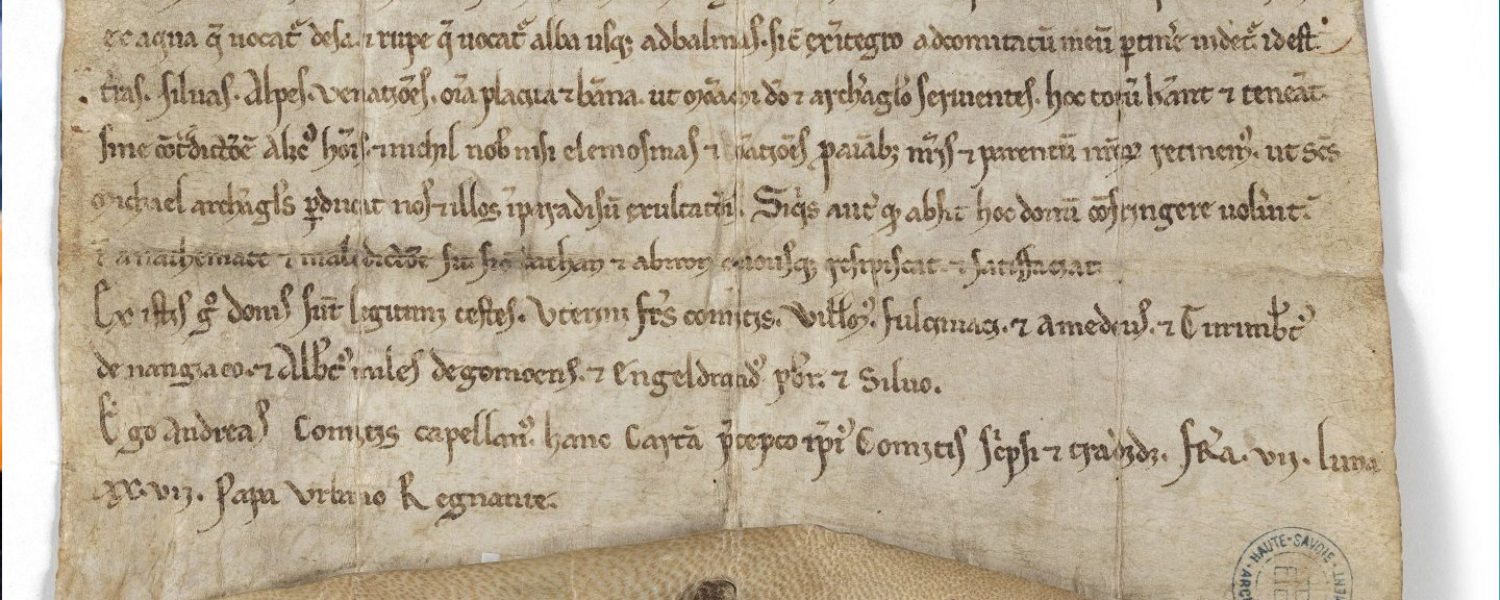 ex aqua q̄ uocat᷑ desa ⁊ rupe q̄ uocat᷑ alba usq; ad balmas. sic̄ ex ītegro ad comitatū meū ꝑtinēre uidet᷑ id est.
t̄ras. siluas. Alpes. uenatiōes. om̄ia placita ⁊ bāna. ut monachi dō ⁊ archāglo seruientes. hoc totū hāant ⁊ teneāt.
sine cōtͣdictiōe alic̄ꝰ hōīs. ⁊ nichil nob nisi elemosinas ⁊ orātiōes p̄ aīab; nr̄is ⁊ parentū nr̄oꝝ retinemꝰ. ut sc̄s
michael archāgl̄s ꝑducat nos ⁊ illos ī paradisū exultatiōīs. Siq̄s aut̄ qđ absit hoc donū cōstringere uoluīt.
ī anathemate ⁊ maledictiōe sit sic̄ dathan ⁊ abiron quousq; resipiscat ⁊ satisfaciat.
Ex istis gͦ donis sūt legitimi testes. Uterini fr̄s comitis. Willm̄ꝰ. fulciniacꝰ. ⁊ amedeus. ⁊ Turumbt̄ꝰ
de nangiaco. ⁊ Albt̄ꝰ miles de gomoens. ⁊ Engeldrandꝰ pb̄r. ⁊ Siluo.
Ego Andreas Comitis capellanꝰ. hanc Cartā p̄cepto ip̄iꝰ Comitis sc̄psi ⁊ tradidi. fr̄a. vii. luna
xx.vii. Papa Urbano Regnante.
HAUTE-SAVOIE